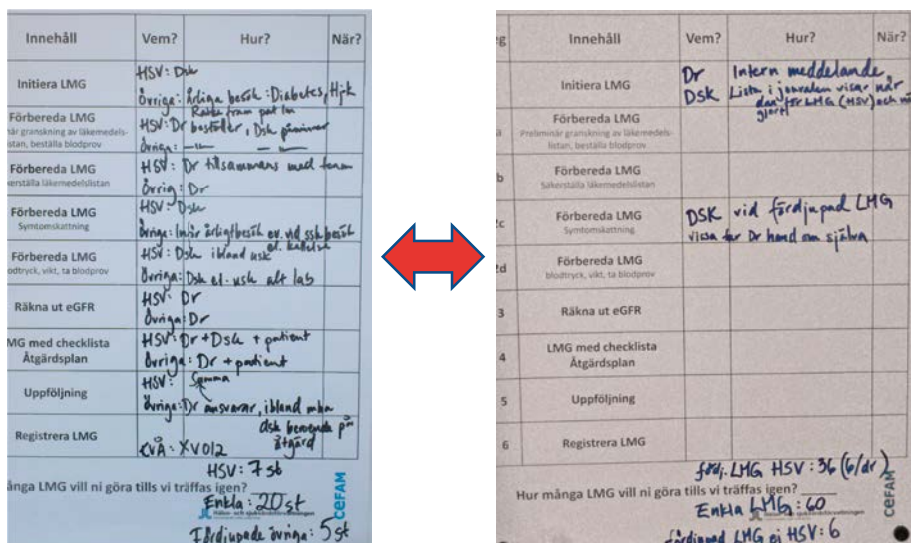 Innehåll Vem? Hur? När?
Initiera LMG
HSV: Dsk
Övriga: Årliga besök: Diabetes, Hjk
Förbereda LMG
när granskning av läkemedels-
listan, beställa blodprov
HSV: Dr beställer, Dsk påminner
Övriga: -"- -"-
Förbereda LMG
kerställa läkemedelslistan
HSV: Dr tillsammans med team
Övrig: Dr
Förbereda LMG
Symtomskattning
HSV: Dsk
Övriga: Inför årligt besök ev. vid ssk besök
el. kallelse
Förbereda LMG
odtryck, vikt, ta blodprov
HSV: Dsk ibland usk
Övriga: Dsk el. usk alt lab
Räkna ut eGFR
HSV: Dr
Övriga: Dr
MG med checklista
Åtgärdsplan
HSV: Dr + Dsk + patient
Övriga: Dr + patient
Uppföljning
HSV: Samma
Övriga: Dr ansvarar, ibland mha
dsk beroende på
åtgärd
Registrera LMG
KVÅ: XV012
HSV: 7 st
ånga LMG vill ni göra tills vi träffas igen?
Enkla: 20 st
Hälso- och sjukvårdsförvaltningen
Fördjupade övriga: 5 st
CEFAM
eg Innehåll Vem? Hur? När?
Initiera LMG
Dr Intern meddelande,
DSK Lista i journalen visar när
LMG (HSV) och
gjort
a
Förbereda LMG
Preliminär granskning av läkemedels-
listan, beställa blodprov
b
Förbereda LMG
Säkerställa läkemedelslistan
2c
Förbereda LMG
Symtomskattning
DSK vid fördjupad LMG
vissa tar Dr hand om själva
2d
Förbereda LMG
blodtryck, vikt, ta blodprov
3 Räkna ut eGFR
4
LMG med checklista
Åtgärdsplan
5 Uppföljning
6 Registrera LMG
fördj. LMG HSV: 36 (6/dr)
Hur många LMG vill ni göra tills vi träffas igen?
Enkla LMG: 60
Hälso- och sjukvårdsförvaltningen
Fördjupad LMG ej HSV: 6
CEFAM